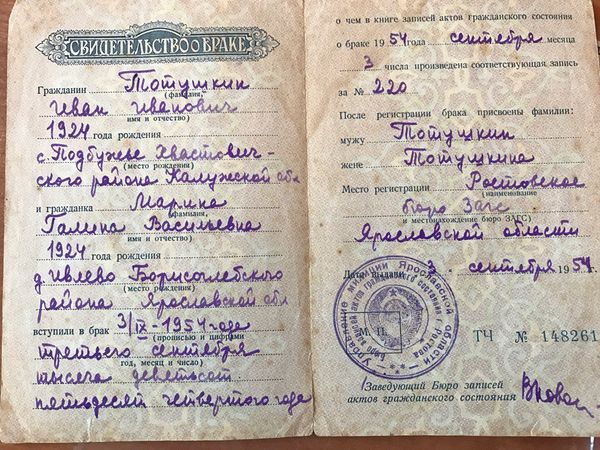 СВИДЕТЕЛЬСТВО О БРАКЕ
Гражданин Тотушкин
(фамилия,
Иван Иванович
имя и отчество)
1924 года рождения
с. Подбужье Хвастович-
(место рождения)
ского района Калужской обл
и гражданка Марина
(фамилия,
Галина Васильевна
имя и отчество)
1924 года рождения
д Ивлево Борисоглебского
(место рождения)
района Ярославской обл
вступили в брак 3/IX-1954 года
(прописью и цифрами
третьего сентября
год, месяц и число)
тысяча девятьсот
пятьдесят четвертого года
о чем в книге записей актов гражданского состояния
о браке 1954 года сентября месяца
3 числа произведена соответствующая запись
за № 220
После регистрации брака присвоены фамилии:
мужу Тотушкин
жене Тотушкина
Место регистрации Ростовское
(наименование
бюро Загс
и местонахождение бюро ЗАГС)
Ярославской области
Дата выдачи 3. сентября 1954г.
Управление милиции Ярославской области
Бюро записей актов гражданского состояния
М. П.
ТЧ № 148261
Заведующий Бюро записей
актов гражданского состояния